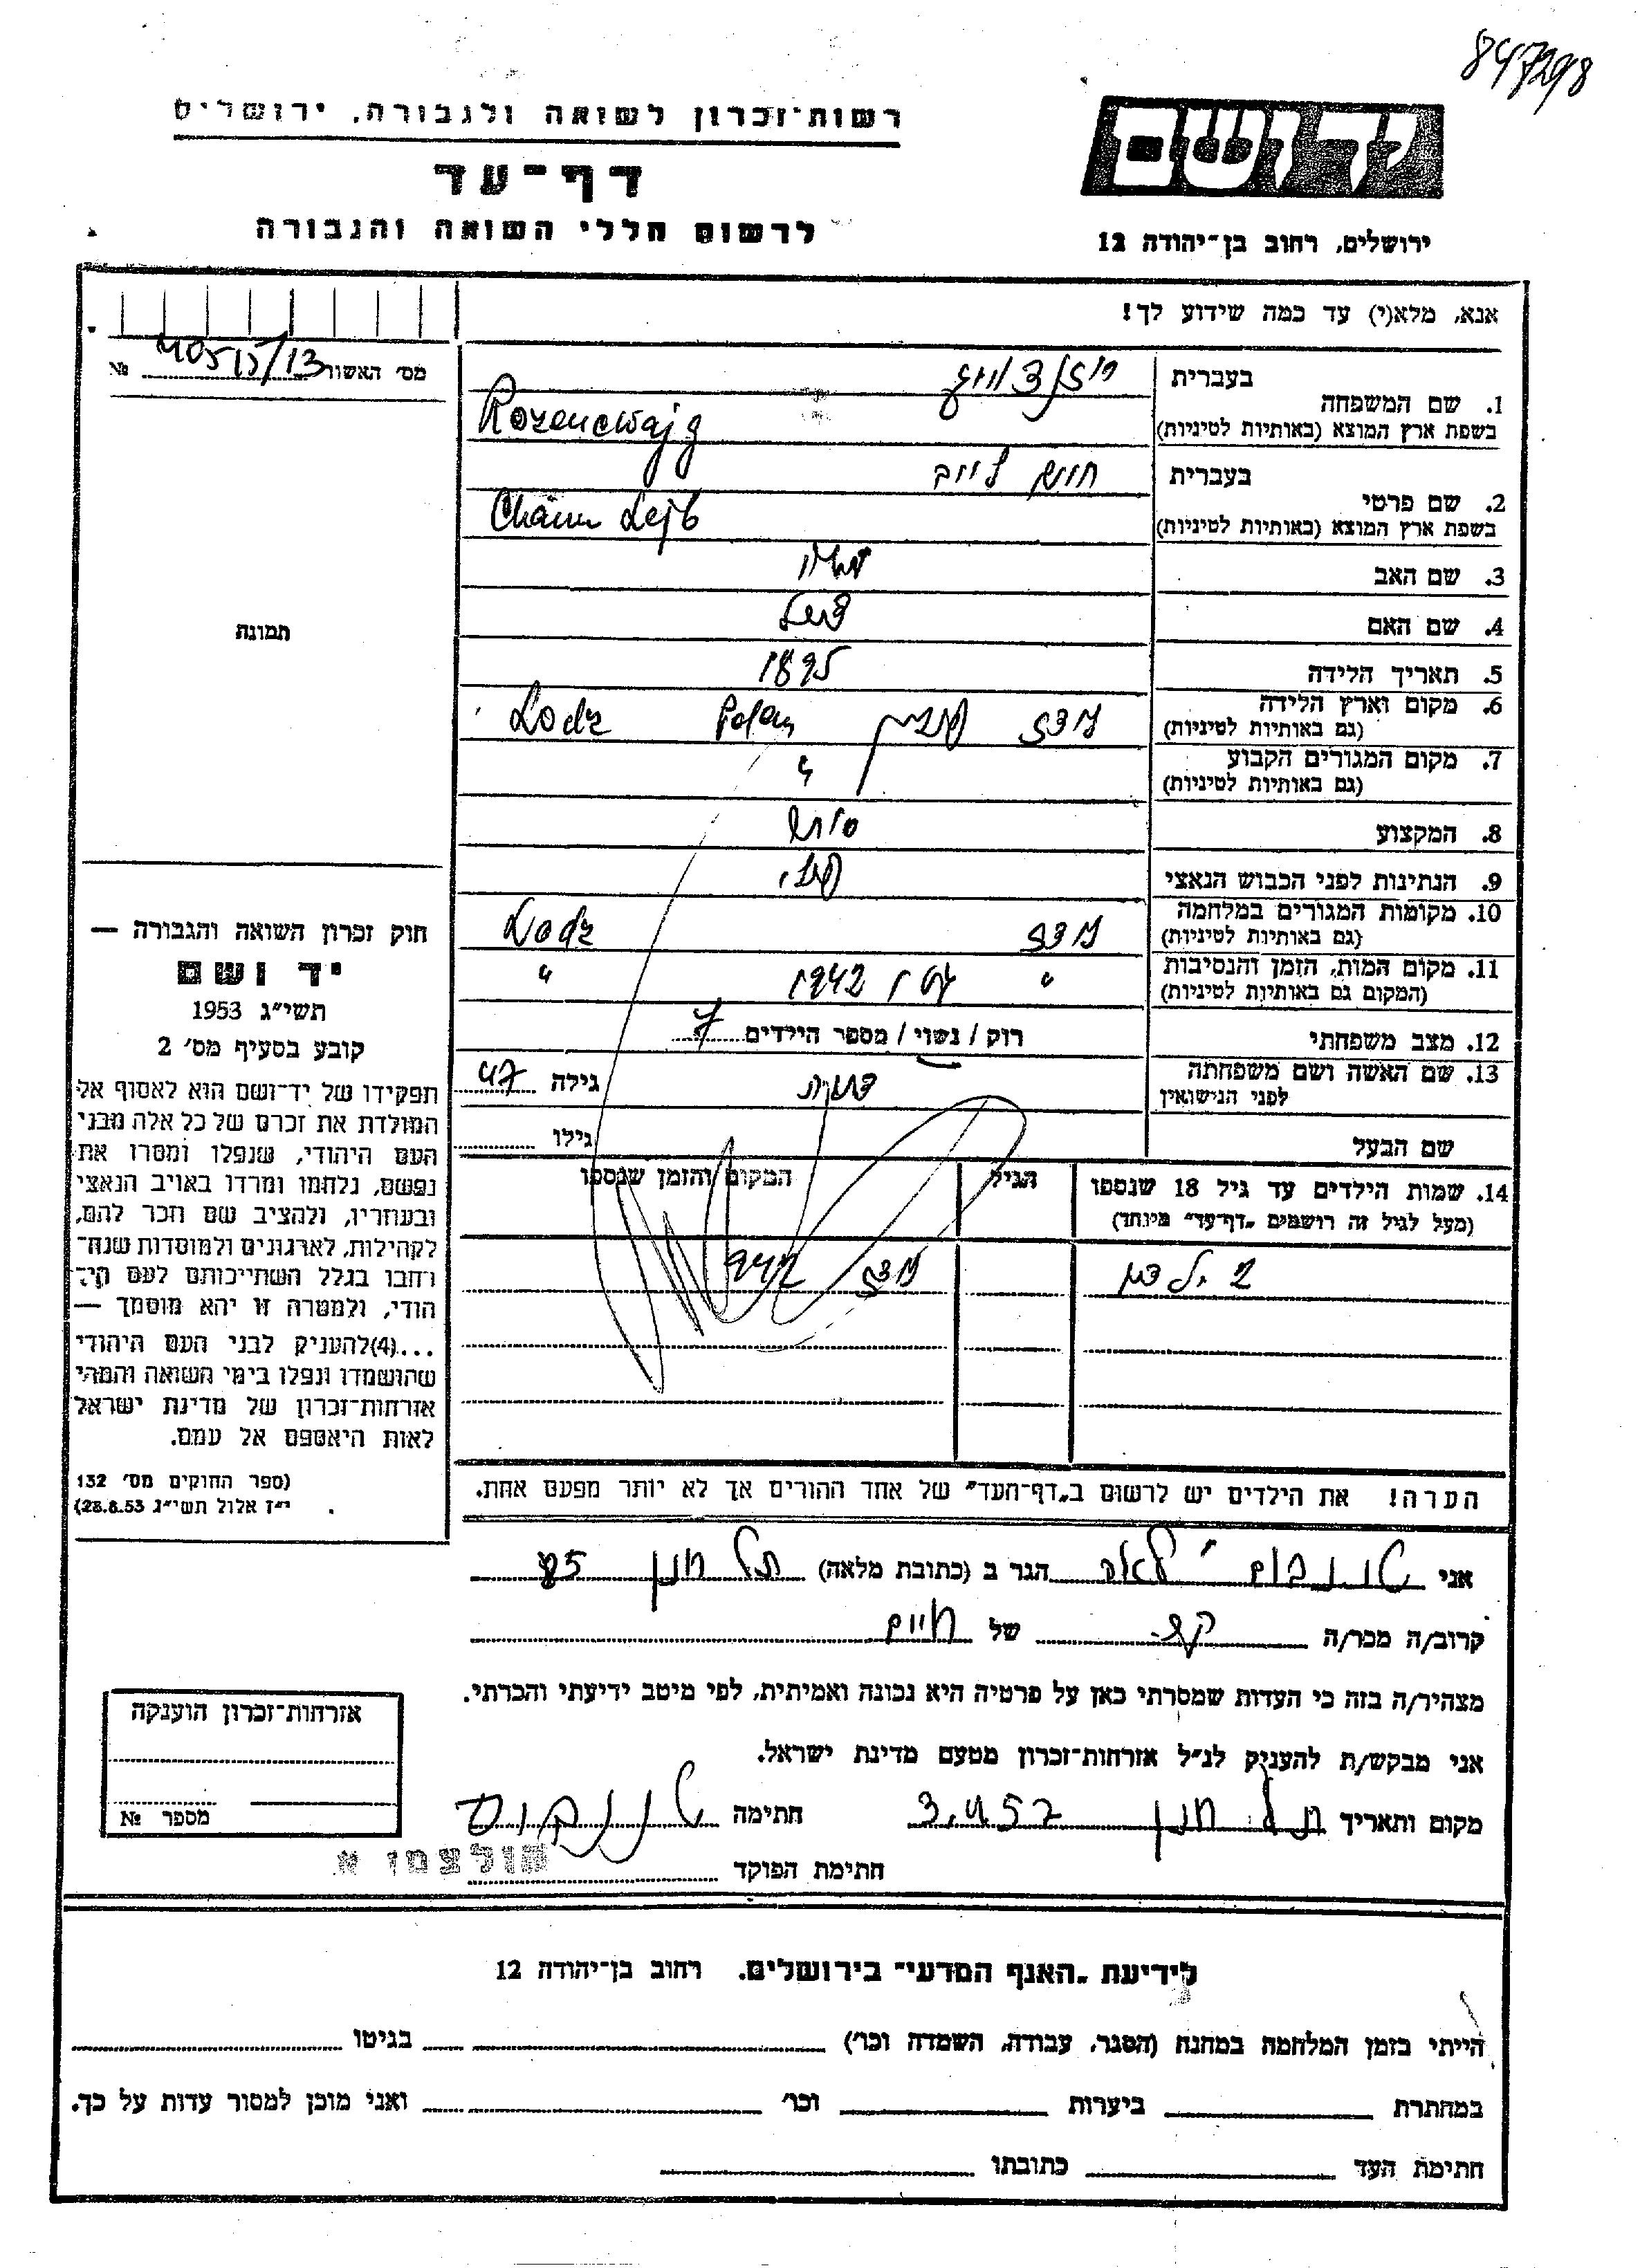 847298
רשות־זכרון לשואה ולגבורה, ירושלים
דף־עד
לרשום חללי השואה והגבורה
יד ושם
ירושלים, רחוב בן־יהודה 12
אנא, מלא(י) עד כמה שידוע לך!
מס׳ האשור № 405/15/13
1. שם המשפחה
בעברית
בשפת ארץ המוצא (באותיות לטיניות) Rozencwajg
2. שם פרטי
בעברית חיים לייב
בשפת ארץ המוצא (באותיות לטיניות) Chaim Lejb
3. שם האב
4. שם האם
5. תאריך הלידה 1895
6. מקום וארץ הלידה
(גם באותיות לטיניות) לודז פולין Polan Lodz
7. מקום המגורים הקבוע
(גם באותיות לטיניות) "
8. המקצוע סוחר
9. הנתינות לפני הכבוש הנאצי פולני
10. מקומות המגורים במלחמה
(גם באותיות לטיניות) לודז Lodz
11. מקום המות, הזמן והנסיבות
(המקום גם באותיות לטיניות) " 1942 "
12. מצב משפחתי רוק / נשוי / מספר הילדים 7
13. שם האשה ושם משפחתה
לפני הנישואין
גילה 47
שם הבעל
גילו
14. שמות הילדים עד גיל 18 שנספו
(מעל לגיל זה רושמים „דף־עד״ מיוחד)
הגיל
המקום והזמן שנספו
2 ילדים לודז 942
הערה! את הילדים יש לרשום ב„דף־העד״ של אחד ההורים אך לא יותר מפעם אחת.
תמונה
חוק זכרון השואה והגבורה —
יד ושם
תשי״ג 1953
קובע בסעיף מס׳ 2
תפקידו של יד־ושם הוא לאסוף אל
המולדת את זכרם של כל אלה מבני
העם היהודי, שנפלו ומסרו את
נפשם, נלחמו ומרדו באויב הנאצי
ובעוזריו, ולהציב שם וזכר להם,
לקהילות, לארגונים ולמוסדות שנח־
רבו בגלל השתייכותם לעם הי־
הודי, ולמטרה זו יהא מוסמך —
...(4)להעניק לבני העם היהודי
שהושמדו ונפלו בימי השואה והמרי
אזרחות־זכרון של מדינת ישראל
לאות היאספם אל עמם.
(ספר החוקים מס׳ 132
י״ז אלול תשי״ג 28.8.53)
אני הגר ב (כתובת מלאה) תל חנן
קרוב/ה מכר/ה של חיים
מצהיר/ה בזה כי העדות שמסרתי כאן על פרטיה היא נכונה ואמיתית, לפי מיטב ידיעתי והכרתי.
אני מבקש/ת להעניק לנ״ל אזרחות־זכרון מטעם מדינת ישראל.
מקום ותאריך תל חנן 3.4.57 חתימה
חתימת הפוקד הולצמן א
אזרחות־זכרון הוענקה
מספר №
לידיעת „האגף המדעי״ בירושלים. רחוב בן־יהודה 12
הייתי בזמן המלחמה במחנה (הסגר, עבודה, השמדה וכו׳) בגיטו
במחתרת ביערות וכו׳ ואני מוכן למסור עדות על כך.
חתימת העד כתובתו